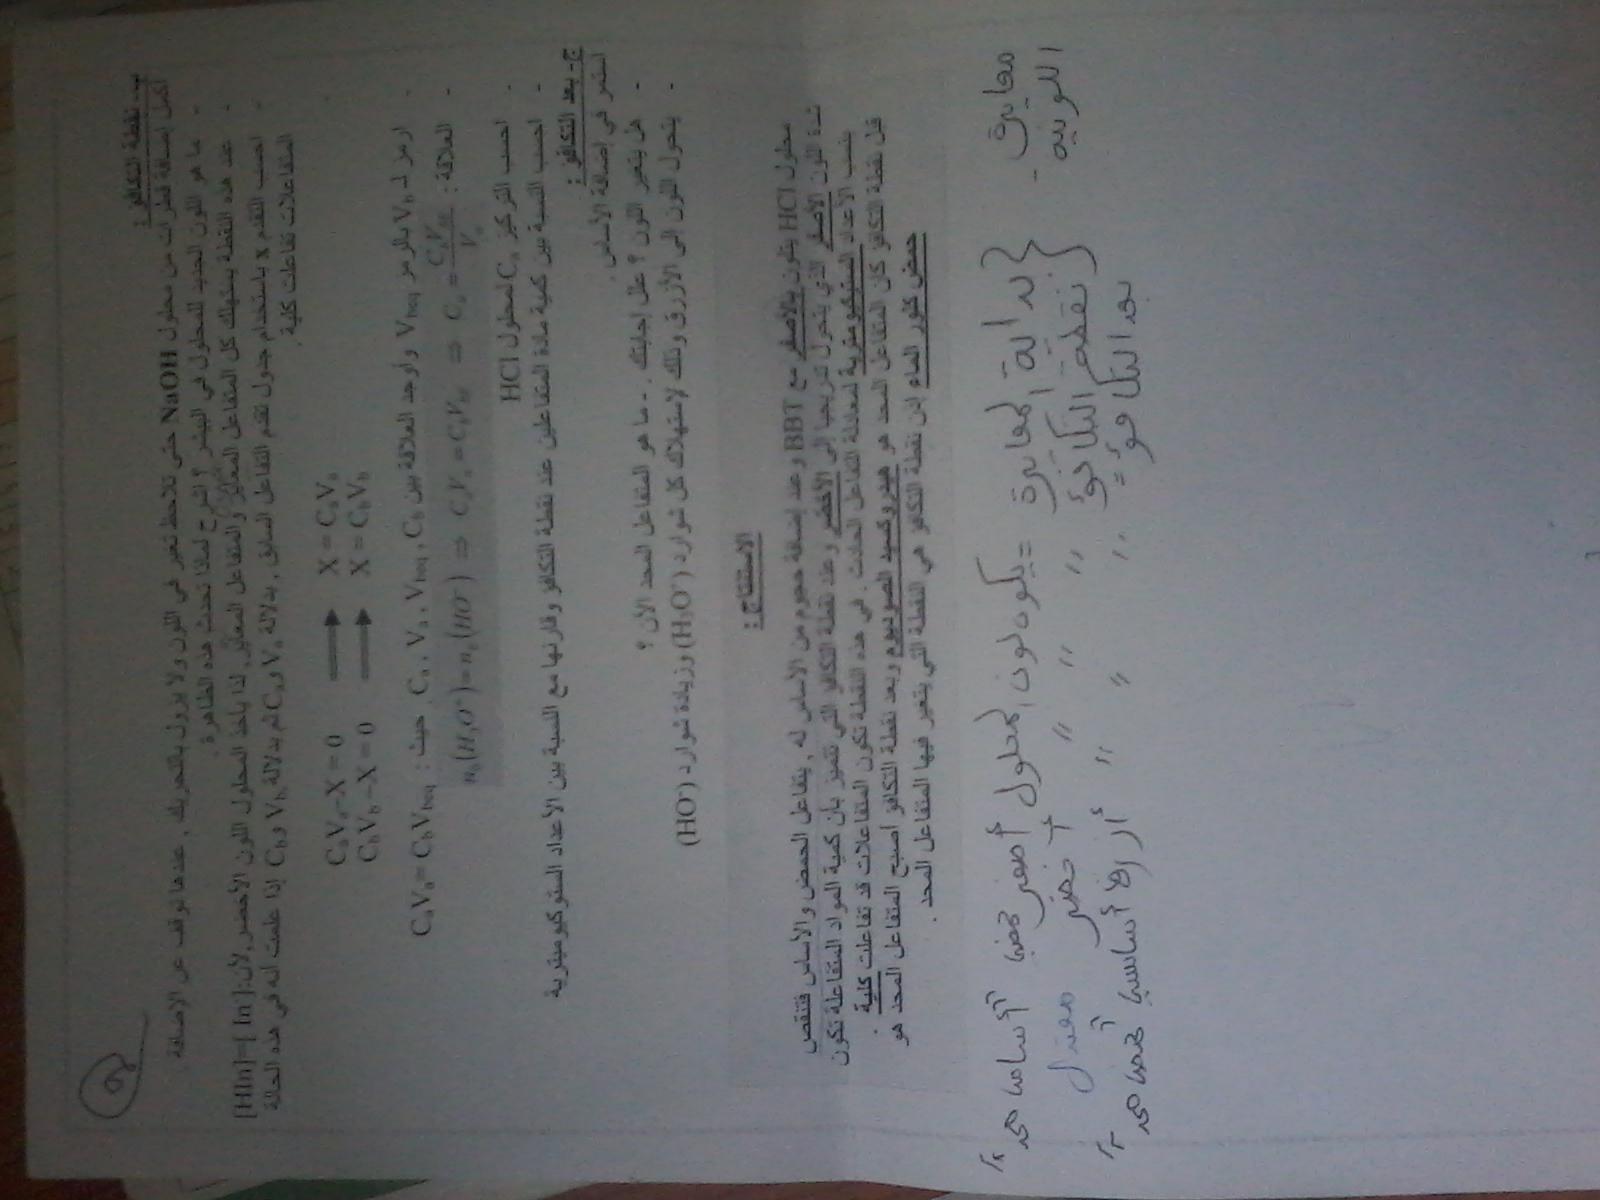 ب- نقطة التكافؤ :
- أكمل إضافة قطرات من محلول NaOH حتى تلاحظ تغير في اللون ولا يزول بالتحريك , عندها توقف عن الإضافة .
- ما هو اللون الجديد للمحلول في البيشر ؟ اشرح لماذا تحدث هذه الظاهرة .
- عند هذه النقطة يستهلك كل المتفاعل المعاير والمتفاعل المعاير, لذا يأخذ المحلول اللون الأخضر لأن: [HIn]=[In⁻]
- احسب التقدم x باستخدام جدول تقدم التفاعل السابق , بدلالة Vₐ و Cₐ ثم بدلالة V_b و C_b إذا علمت انه في هذه الحالة
المتفاعلات تفاعلت كلية .
CₐVₐ–X = 0 ⟶ X = CₐVₐ
C_bV_b –X = 0 ⟶ X = C_bV_b
- ارمز لـ V_b بالرمز V_beq واوجد العلاقة بين Cₐ , Vₐ , V_beq , C_b حيث : CₐVₐ= C_bV_beq
- العلاقة : n₀(H₃O⁺) = n₀(HO⁻) ⇒ CₐVₐ = C_bV_bE ⇒ Cₐ = C_bV_bE / Vₐ
- احسب التركيز Cₐ لمحلول HCl
- احسب النسبة بين كمية مادة المتفاعلين عند نقطة التكافؤ وقارنها مع النسبة بين الأعداد الستوكيومترية
ج- بعد التكافؤ :
استمر في إضافة الأساس .
- هل يتغير اللون ؟ علل إجابتك . - ما هو المتفاعل المحد الآن ؟
- يتحول اللون إلى الأزرق وذلك لاستهلاك كل شوارد (H₃O⁺) وزيادة شوارد (HO⁻)
الاستنتاج :
محلول HCl يتلون بالأصفر مع BBT وعند إضافة حجوم من الأساس له , يتفاعل الحمض والأساس فتنقص
شدة اللون الأصفر الذي يتحول تدريجيا إلى الأخضر وعند نقطة التكافؤ التي تتميز بأن كمية المواد المتفاعلة تكون
بنسب الأعداد الستيكيومترية لمعادلة التفاعل الحادث . في هذه النقطة تكون المتفاعلات قد تفاعلت كلية .
قبل نقطة التكافؤ كان المتفاعل المحد هو هيدروكسيد الصوديوم وبعد نقطة التكافؤ اصبح المتفاعل المحد هو
حمض كلور الماء إذن نقطة التكافؤ هي النقطة التي يتغير فيها المتفاعل المحد .
- معايرة
اللونية
بداية المعايرة = يكون لون المحلول أصفر
نقطة التكافؤ " " " أخضر معتدل
بعد التكافؤ = " " " أزرق